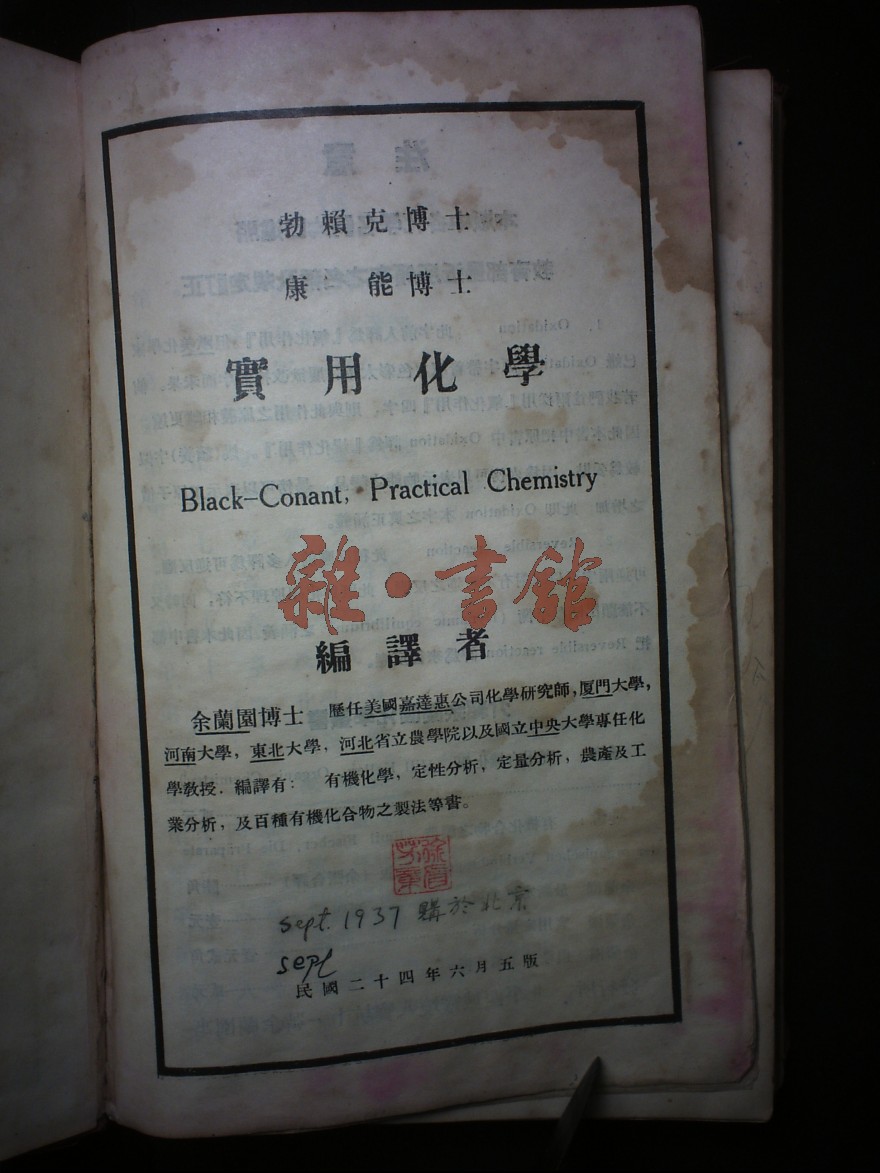 勃賴克博士
康能博士
實用化學
Black-Conant, Practical Chemistry
雜·書館
編譯者
余蘭園博士 歷任美國嘉達惠公司化學研究師,厦門大學,
河南大學,東北大學,河北省立農學院以及國立中央大學專任化
學敎授.編譯有: 有機化學,定性分析,定量分析,農產及工
業分析,及百種有機化合物之製法等書。
sept. 1937 購於北京
sept
民國二十四年六月五版